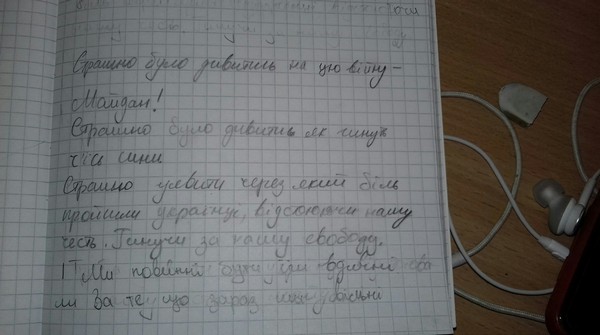 Страшно було дивитись на цю війну –
Майдан!
Страшно було дивитись як гинуть
чиїсь сини
Страшно уявити через який біль
пройшли українці, відстоюючи нашу
честь. Гинучи за нашу свободу.
І Ми повинні бути їм вдячні
за те що зараз ми вільні